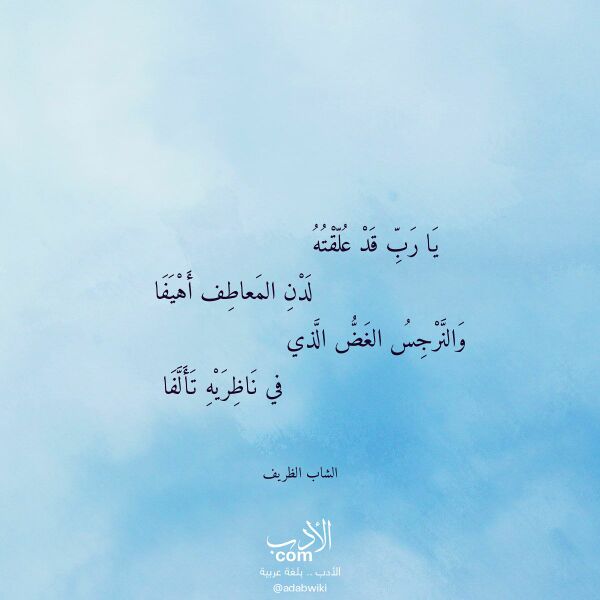 يَا رَبِّ قَدْ عُلِّقْتُهُ
لَدْنِ المَعاطِف أَهْيَفَا
وَالنَّرْجِسُ الغَضُّ الَّذي
في نَاظِرَيْهِ تَأَلَّفَا
الشاب الظريف
الأدب
com
الأدب .. بلغة عربية
@adabwiki